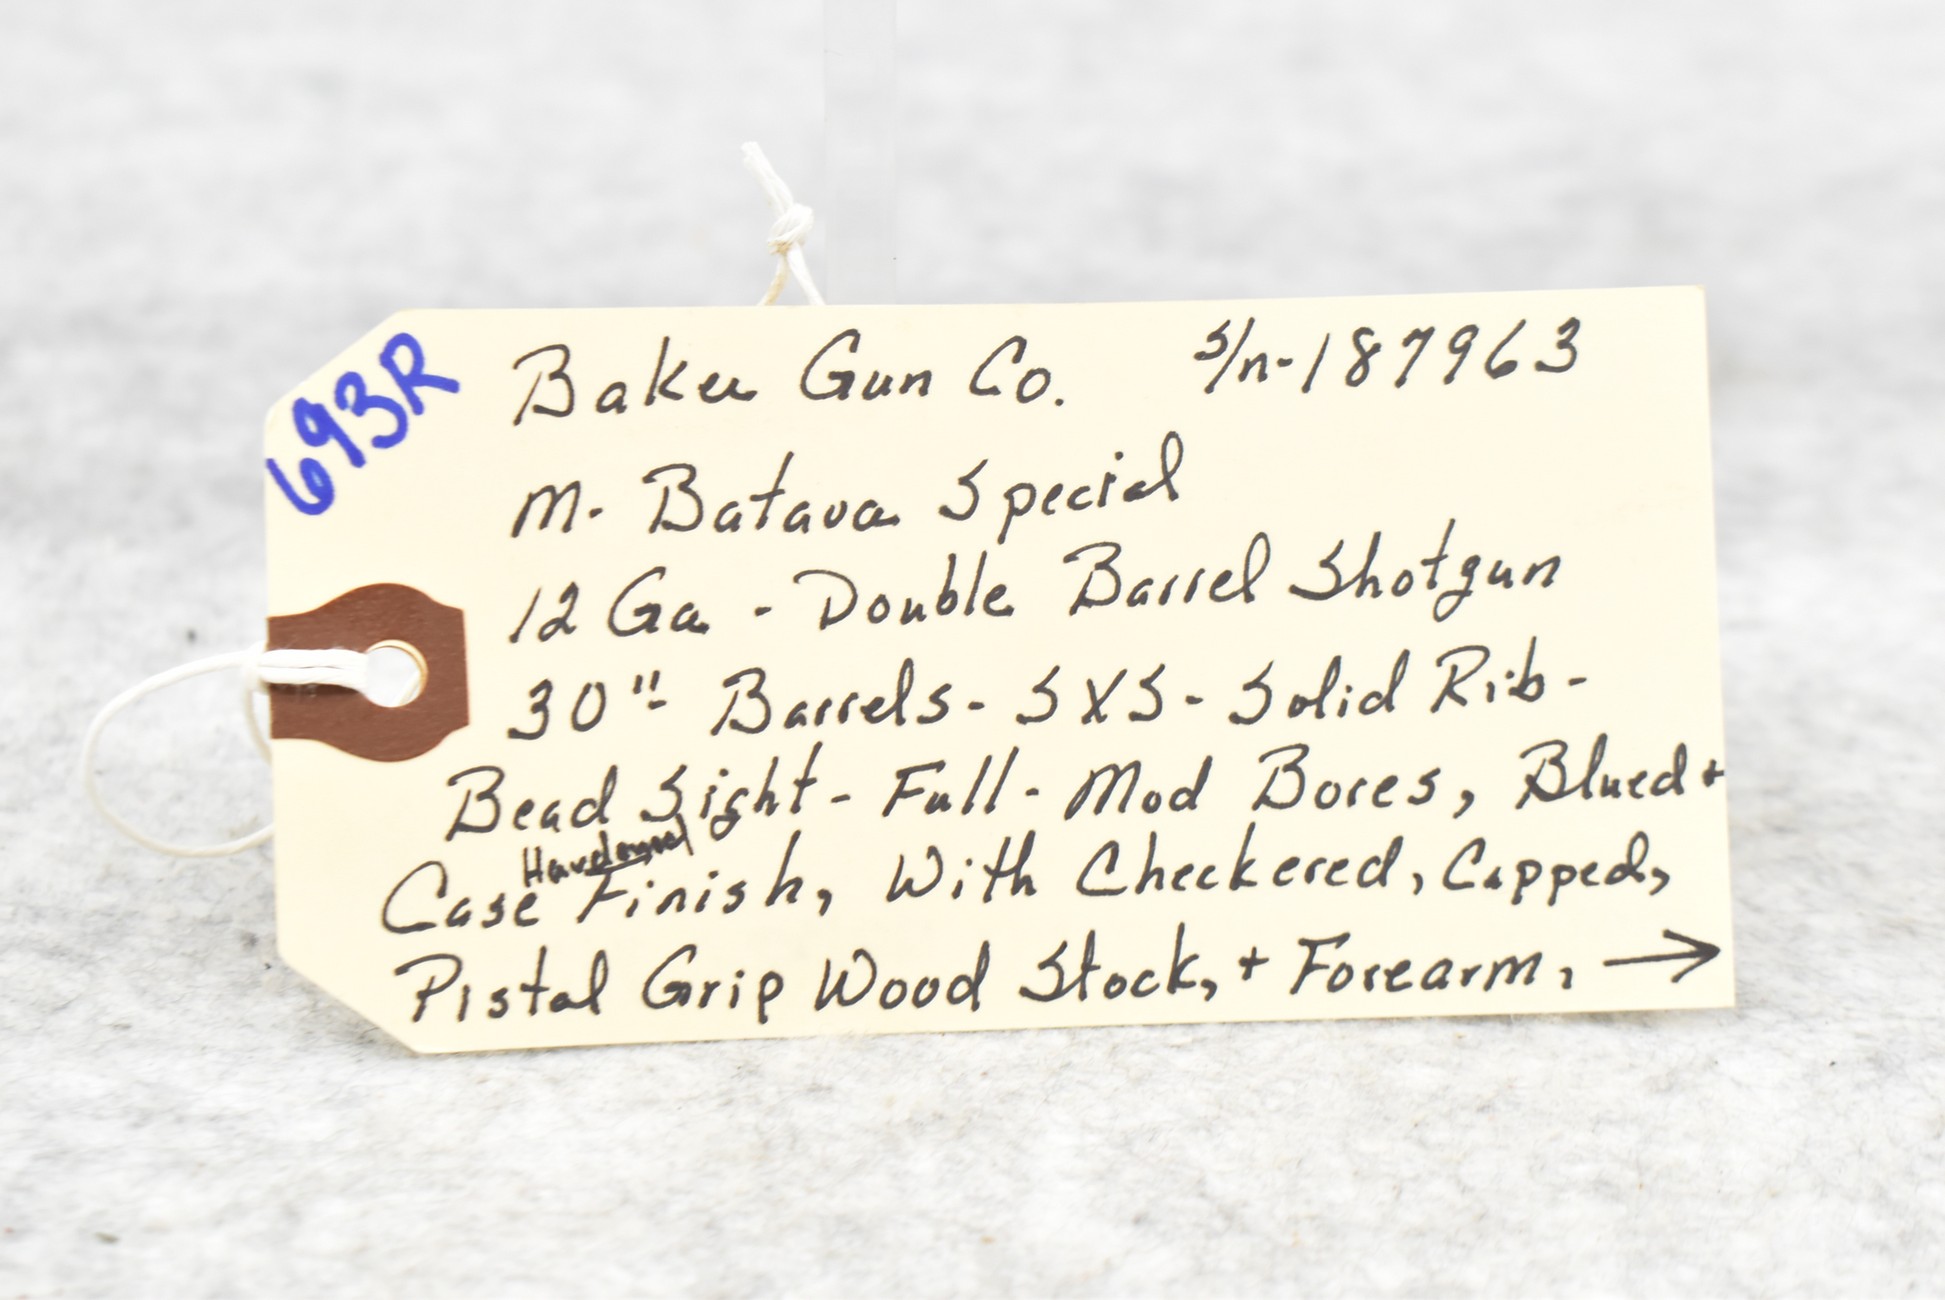 693R
Baker Gun Co. S/n-187963
M- Batava Special
12 Ga - Double Barrel Shotgun
30"- Barrels- SXS- Solid Rib-
Bead Sight- Full- Mod Bores, Blued +
Hardened
Case Finish, With Checkered, Capped,
Pistol Grip Wood Stock, + Forearm, →